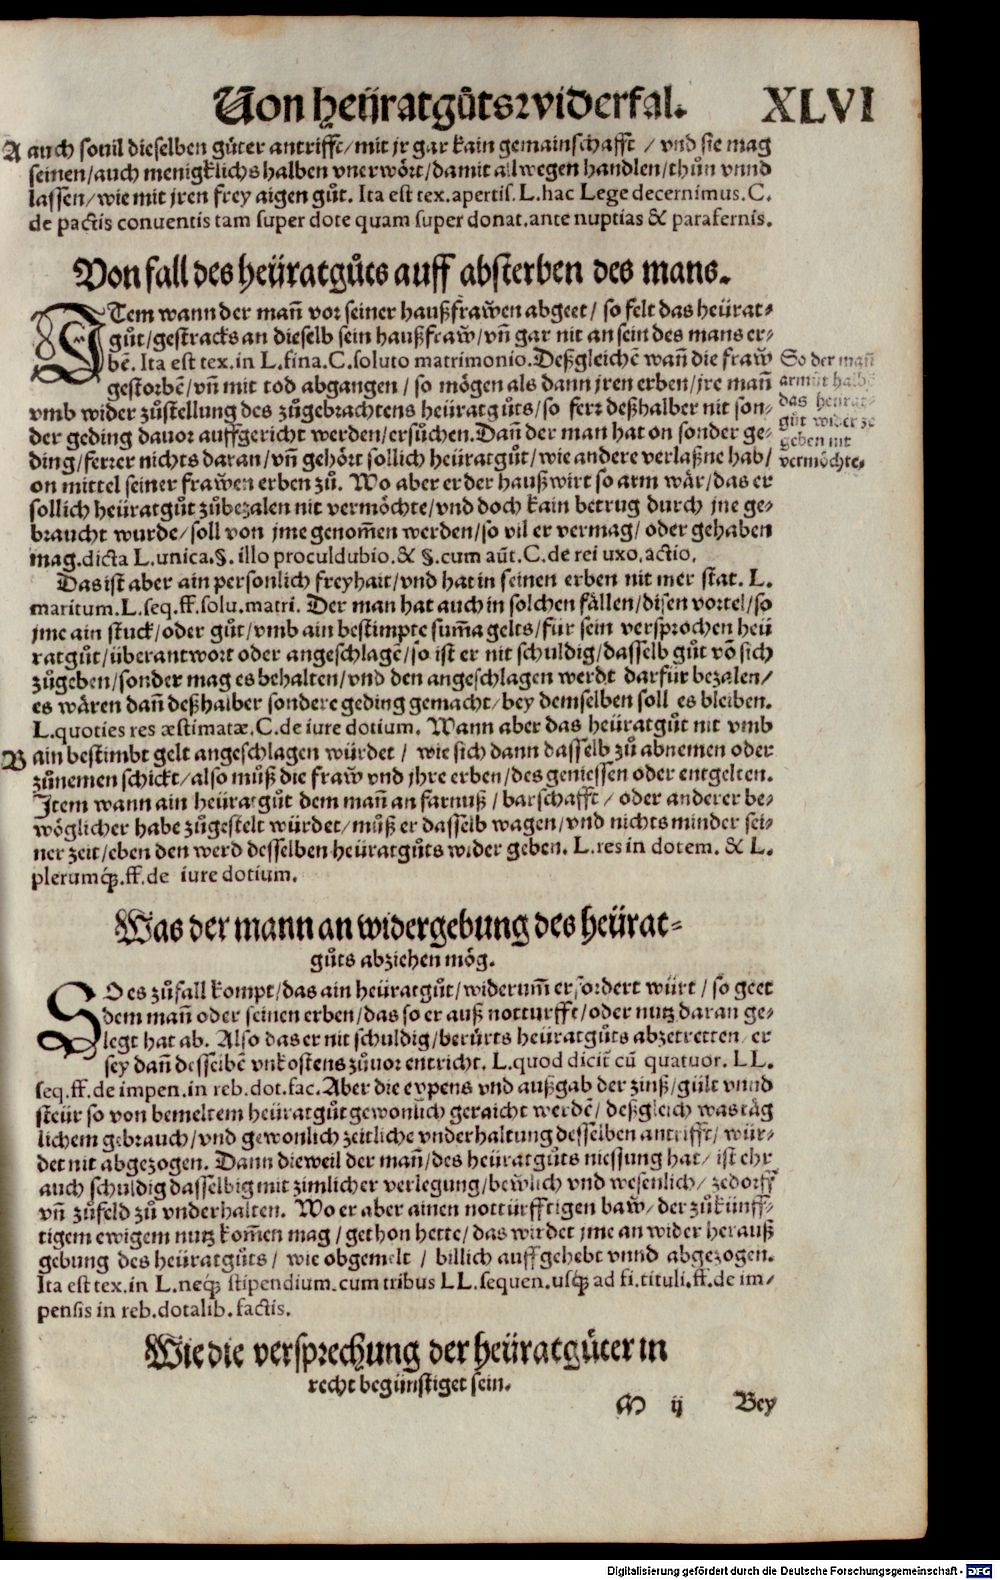 Von heyratgůts widerfal. XLVI
A auch souil dieselben gůter antrifft / mit jr gar kain gemainschafft / vnd sie mag
seinen / auch menigklichs halben vnerwört / damit allwegen handlen / thůn vnnd
lassen / wie mit jren frey aigen gůt. Ita est tex. apertis. L. hac Lege decernimus. C.
de pactis conventis tam super dote quam super donat. ante nuptias & parafernis.
Von fall des heüratgůts auff absterben des mans.
ITem wann der mañ vor seiner haußfrawen abgeet / so felt das heürat-
gůt / gestracks an dieselb sein haußfraw / vñ gar nit an sein des mans er-
bē. Ita est tex. in L. fina. C. soluto matrimonio. Deßgleichē wañ die fraw
gestorbē / vñ mit tod abgangen / so mögen als dann jren erben / jre mañ
vmb wider zůstellung des zůgebrachtens heüratgůts / so ferr deßhalber nit son-
der geding dauor auffgericht werden / ersůchen. Dañ der man hat on sonder ge-
ding / ferrer nichts daran / vñ gehört sollich heüratgůt / wie andere verlaßne hab /
on mittel seiner frawen erben zů. Wo aber er der haußwirt so arm wär / das er
sollich heüratgůt zůbezalen nit vermöchte / vnd doch kain betrug durch jne ge-
braucht wurde / soll von jme genom̄en werden / so vil er vermag / oder gehaben
mag. dicta L. unica. §. illo proculdubio. & §. cum aūt. C. de rei uxo. actio.
So der mañ
armůt halbē
das heürat-
gůt wider ze
geben nit
vermöchte.
Das ist aber ain personlich freyhait / vnd hat in seinen erben nit mer stat. L.
maritum. L. seq. ff. solu. matri. Der man hat auch in solchen fällen / disen vortel / so
jme ain stuck / oder gůt / vmb ain bestimpte sum̄a gelts / für sein versprochen heü
ratgůt / überantwort oder angeschlagē / so ist er nit schuldig / dasselb gůt vō sich
zůgeben / sonder mag es behalten / vnd den angeschlagen werdt darfür bezalen /
es wären dañ deßhalber sondere geding gemacht / bey demselben soll es bleiben.
L. quoties res æstimatæ. C. de iure dotium. Wann aber das heüratgůt nit vmb
B ain bestimbt gelt angeschlagen würdet / wie sich dann dasselb zů abnemen oder
zůnemen schickt / also můß die fraw vnd jhre erben / des geniessen oder entgelten.
Item wann ain heüratgůt dem mañ an farnuß / barschafft / oder anderer be-
wöglicher habe zůgestelt würdet / můß er dasselb wagen / vnd nichts minder sei-
ner zeit / eben den werd desselben heüratgůts wider geben. L. res in dotem. & L.
plerumq̃. ff. de iure dotium.
Was der mann an widergebung des heürat-
gůts abziehen mög.
SO es zůfall kompt / das ain heüratgůt / widerum̄ erfordert würt / so geet
dem mañ oder seinen erben / das so er auß notturfft / oder nutz daran ge-
legt hat ab. Also das er nit schuldig / berürts heüratgůts abzetretten / er
sey dañ desselbē vnkostens zůuor entricht. L. quod dicit̃ cū quatuor. LL.
seq. ff. de impen. in reb. dot. fac. Aber die expens vnd außgab der zinß / gült vnnd
steür so von bemeltem heüratgůt gewonlich geraicht werdē / deßgleich was täg
lichem gebrauch / vnd gewonlich zeitliche vnderhaltung desselben antrifft / wür-
det nit abgezogen. Dann dieweil der mañ / des heüratgůts niessung hat / ist ehr
auch schuldig dasselbig mit zimlicher verlegung / bewlich vnd wesenlich / zedorff
vñ zůfeld zů vnderhalten. Wo er aber ainen notturfftigen baw / der zůkünff-
tigem ewigem nutz kom̄en mag / gethon hette / das wirdet jme an wider herauß
gebung des heüratgůts / wie obgemelt / billich auffgehebt vnnd abgezogen.
Ita est tex. in L. neq̃ stipendium. cum tribus LL. sequen. usq̃ ad fi. tituli. ff. de im-
pensis in reb. dotalib. factis.
Wie die versprechung der heüratgůter in
recht begünstiget sein.
M ij Bey
Digitalisierung gefördert durch die Deutsche Forschungsgemeinschaft - DFG